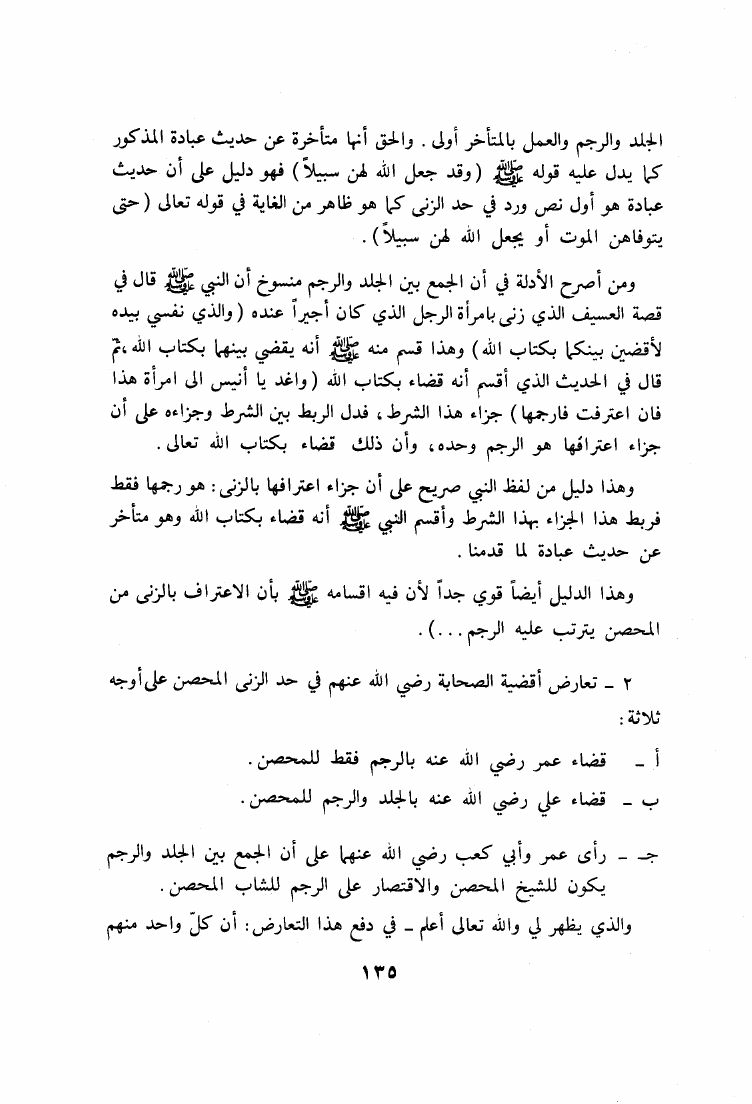 الجلد والرجم والعمل بالمتأخر أولى. والحق أنها متأخرة عن حديث عبادة المذكور
كما يدل عليه قوله ﷺ (وقد جعل الله لهن سبيلاً) فهو دليل على أن حديث
عبادة هو أول نص ورد في حد الزنى كما هو ظاهر من الغاية في قوله تعالى (حتى
يتوفاهن الموت أو يجعل الله لهن سبيلاً).
ومن أصرح الأدلة في أن الجمع بين الجلد والرجم منسوخ أن النبي ﷺ قال في
قصة العسيف الذي زنى بامرأة الرجل الذي كان أجيراً عنده (والذي نفسي بيده
لأقضين بينكما بكتاب الله) وهذا قسم منه ﷺ أنه يقضي بينهما بكتاب الله، ثم
قال في الحديث الذي أقسم أنه قضاء بكتاب الله (واغد يا أنيس الى امرأة هذا
فان اعترفت فارجمها) جزاء هذا الشرط، فدل الربط بين الشرط وجزاءه على أن
جزاء اعترافها هو الرجم وحده، وأن ذلك قضاء بكتاب الله تعالى.
وهذا دليل من لفظ النبي صريح على أن جزاء اعترافها بالزنى: هو رجمها فقط
فربط هذا الجزاء بهذا الشرط وأقسم النبي ﷺ أنه قضاء بكتاب الله وهو متأخر
عن حديث عبادة لما قدمنا.
وهذا الدليل أيضاً قوي جداً لأن فيه اقسامه ﷺ بأن الاعتراف بالزنى من
المحصن يترتب عليه الرجم...).
٢ - تعارض أقضية الصحابة رضي الله عنهم في حد الزنى المحصن على أوجه
ثلاثة:
أ - قضاء عمر رضي الله عنه بالرجم فقط للمحصن.
ب - قضاء علي رضي الله عنه بالجلد والرجم للمحصن.
جـ - رأى عمر وأبي كعب رضي الله عنهما على أن الجمع بين الجلد والرجم
يكون للشيخ المحصن والاقتصار على الرجم للشاب المحصن.
والذي يظهر لي والله تعالى أعلم - في دفع هذا التعارض: أن كلّ واحد منهم
١٣٥